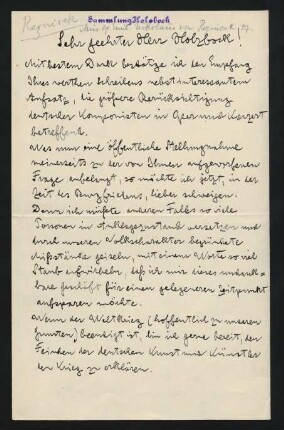 Reznicek
Sammlung Holzbock
Sehr geehrter Herr Holzbock!
Mit bestem Dank bestätige ich den Empfang
Ihres werthen Schreibens nebst interessantem
Aufsatz, die größere Berücksichtigung
deutscher Komponisten in Oper und Konzert
betreffend.
Was nun eine öffentliche Stellungnahme
meinerseits zu der von Ihnen aufgeworfenen
Frage anbelangt, so möchte ich jetzt, in der
Zeit des Burgfriedens, lieber schweigen.
Denn ich müßte anderen Falles so viele
Personen in Anklagezustand versetzen und
durch unseren Volkscharakter begründete
Mißstände geißeln, mit einem Worte so viel
Staub aufwirbeln, daß ich mir dieses undank-
bare Geschäft für einen gelegeneren Zeitpunkt
aufsparen möchte.
Wenn der Weltkrieg (hoffentlich zu unseren
Gunsten) beendigt ist, bin ich gerne bereit, den
Feinden der deutschen Kunst und Künstler
den Krieg zu erklären.